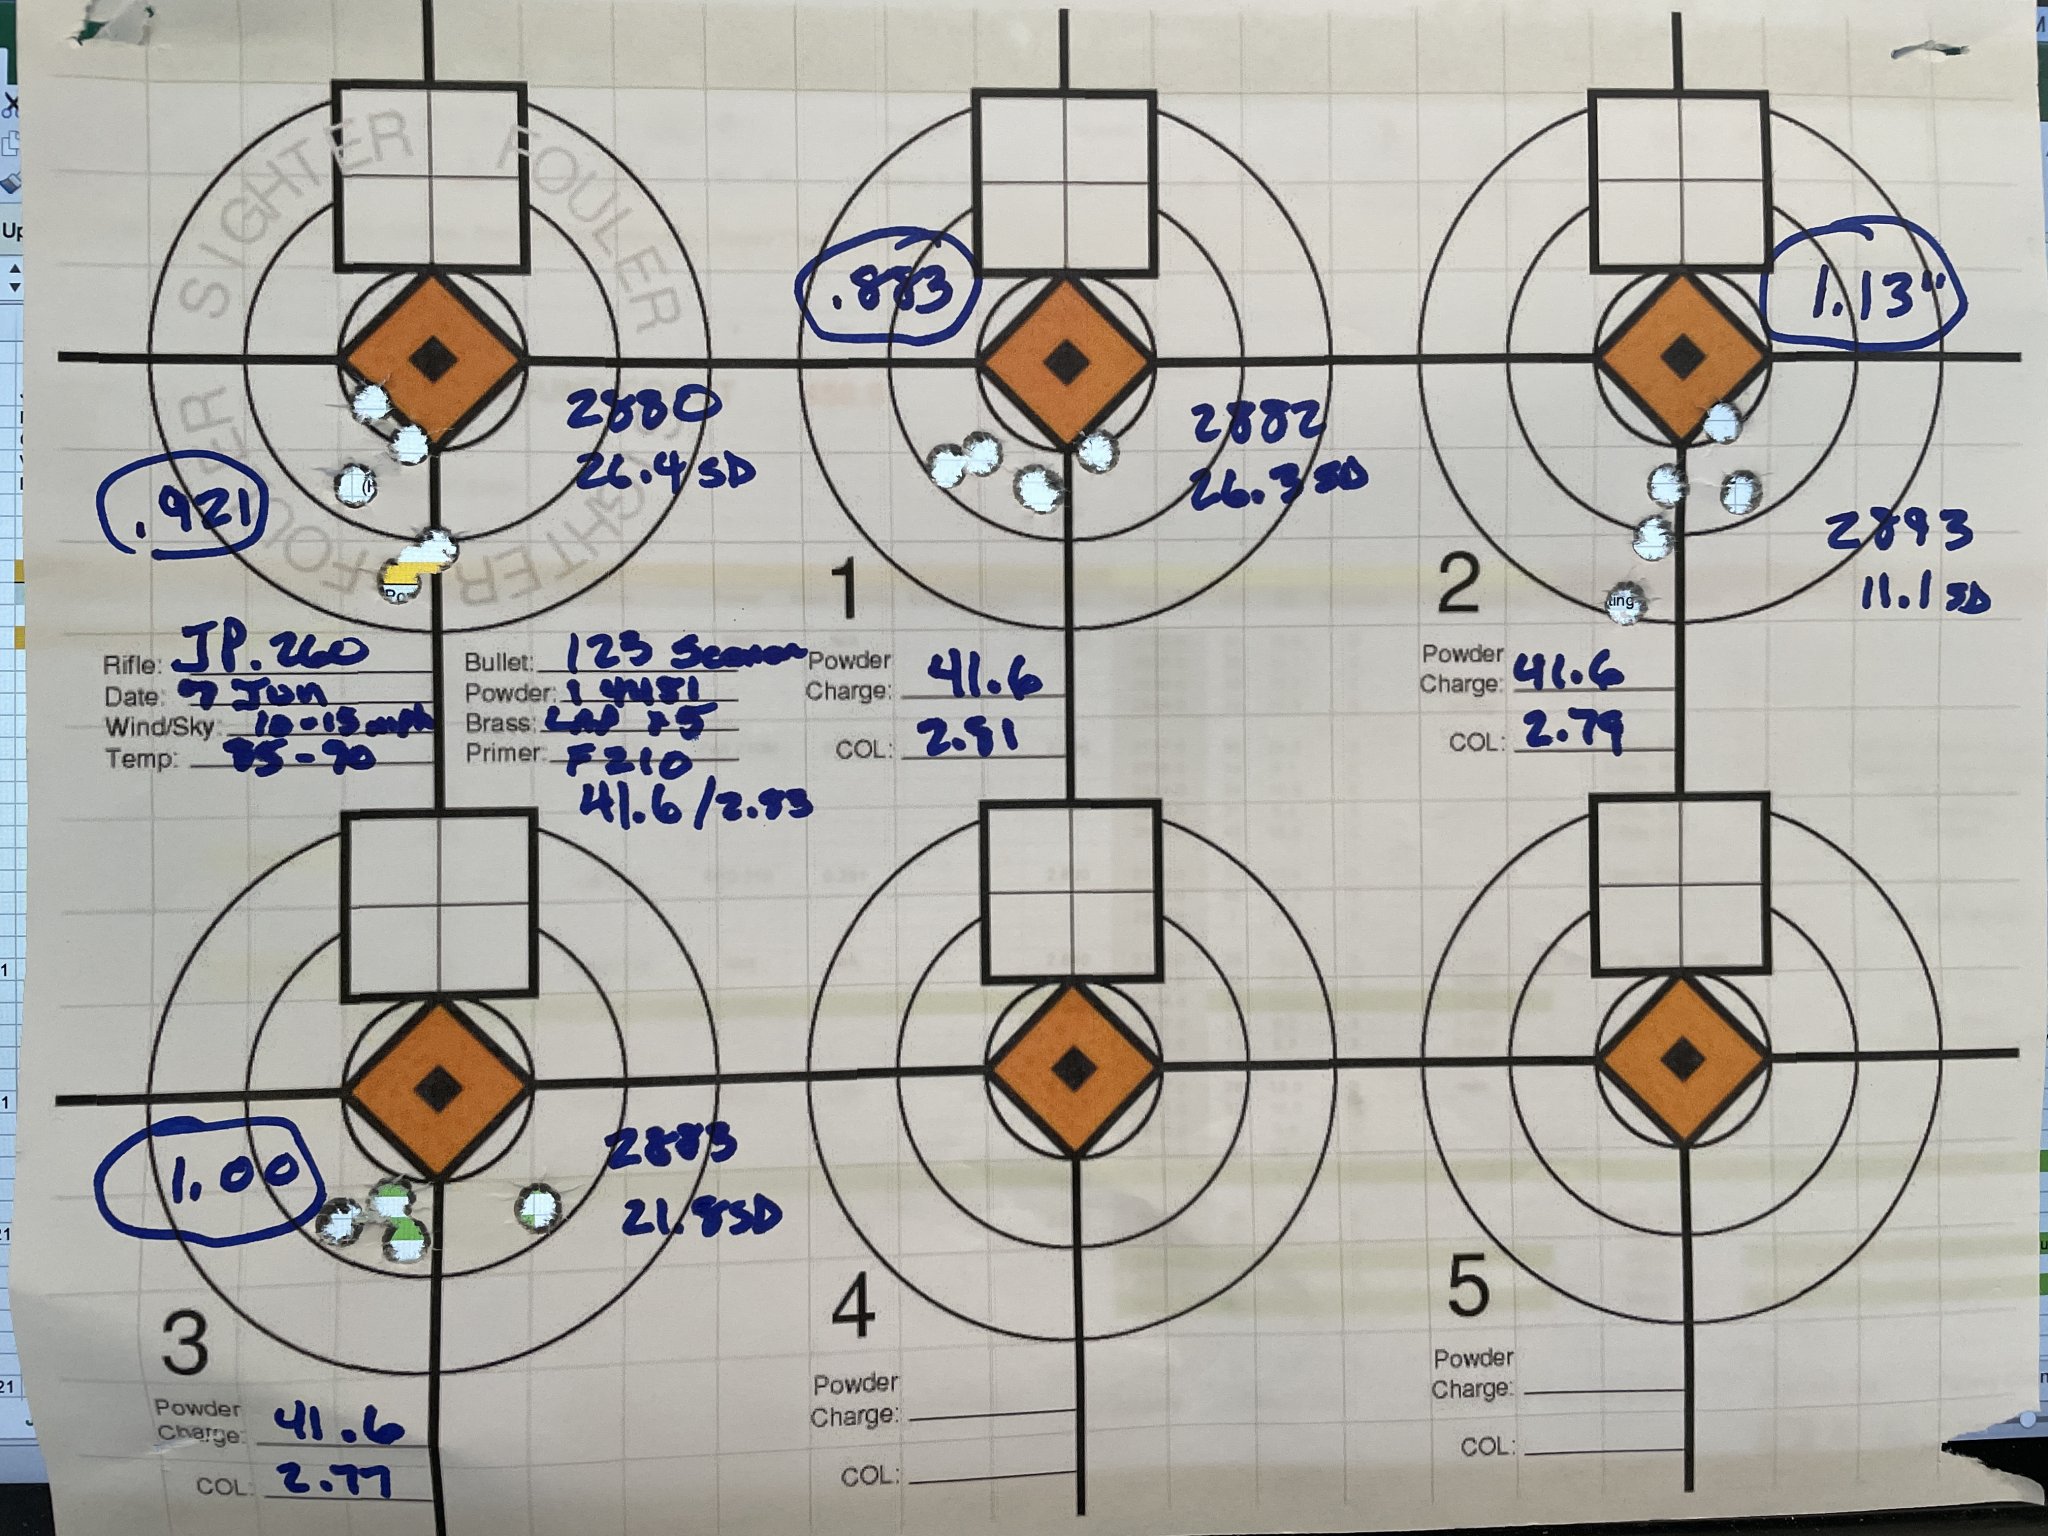 SIGHTER FOULER
SIGHTER FOULER
.921
2880
26.4 SD
.883
2882
26.3 SD
1.13"
2893
11.1 SD
1
2
Rifle: JP .260
Date: 7 Jun
Wind/Sky: 10-15 mph
Temp: 85-90
Bullet: 123 Scenar
Powder:
Brass: LAP x5
Primer: F210
41.6/2.83
Powder
Charge: 41.6
COL: 2.81
Powder
Charge: 41.6
COL: 2.79
1.00
2883
21.8 SD
3
Powder
Charge: 41.6
COL: 2.77
4
Powder
Charge:
COL:
5
Powder
Charge:
COL: